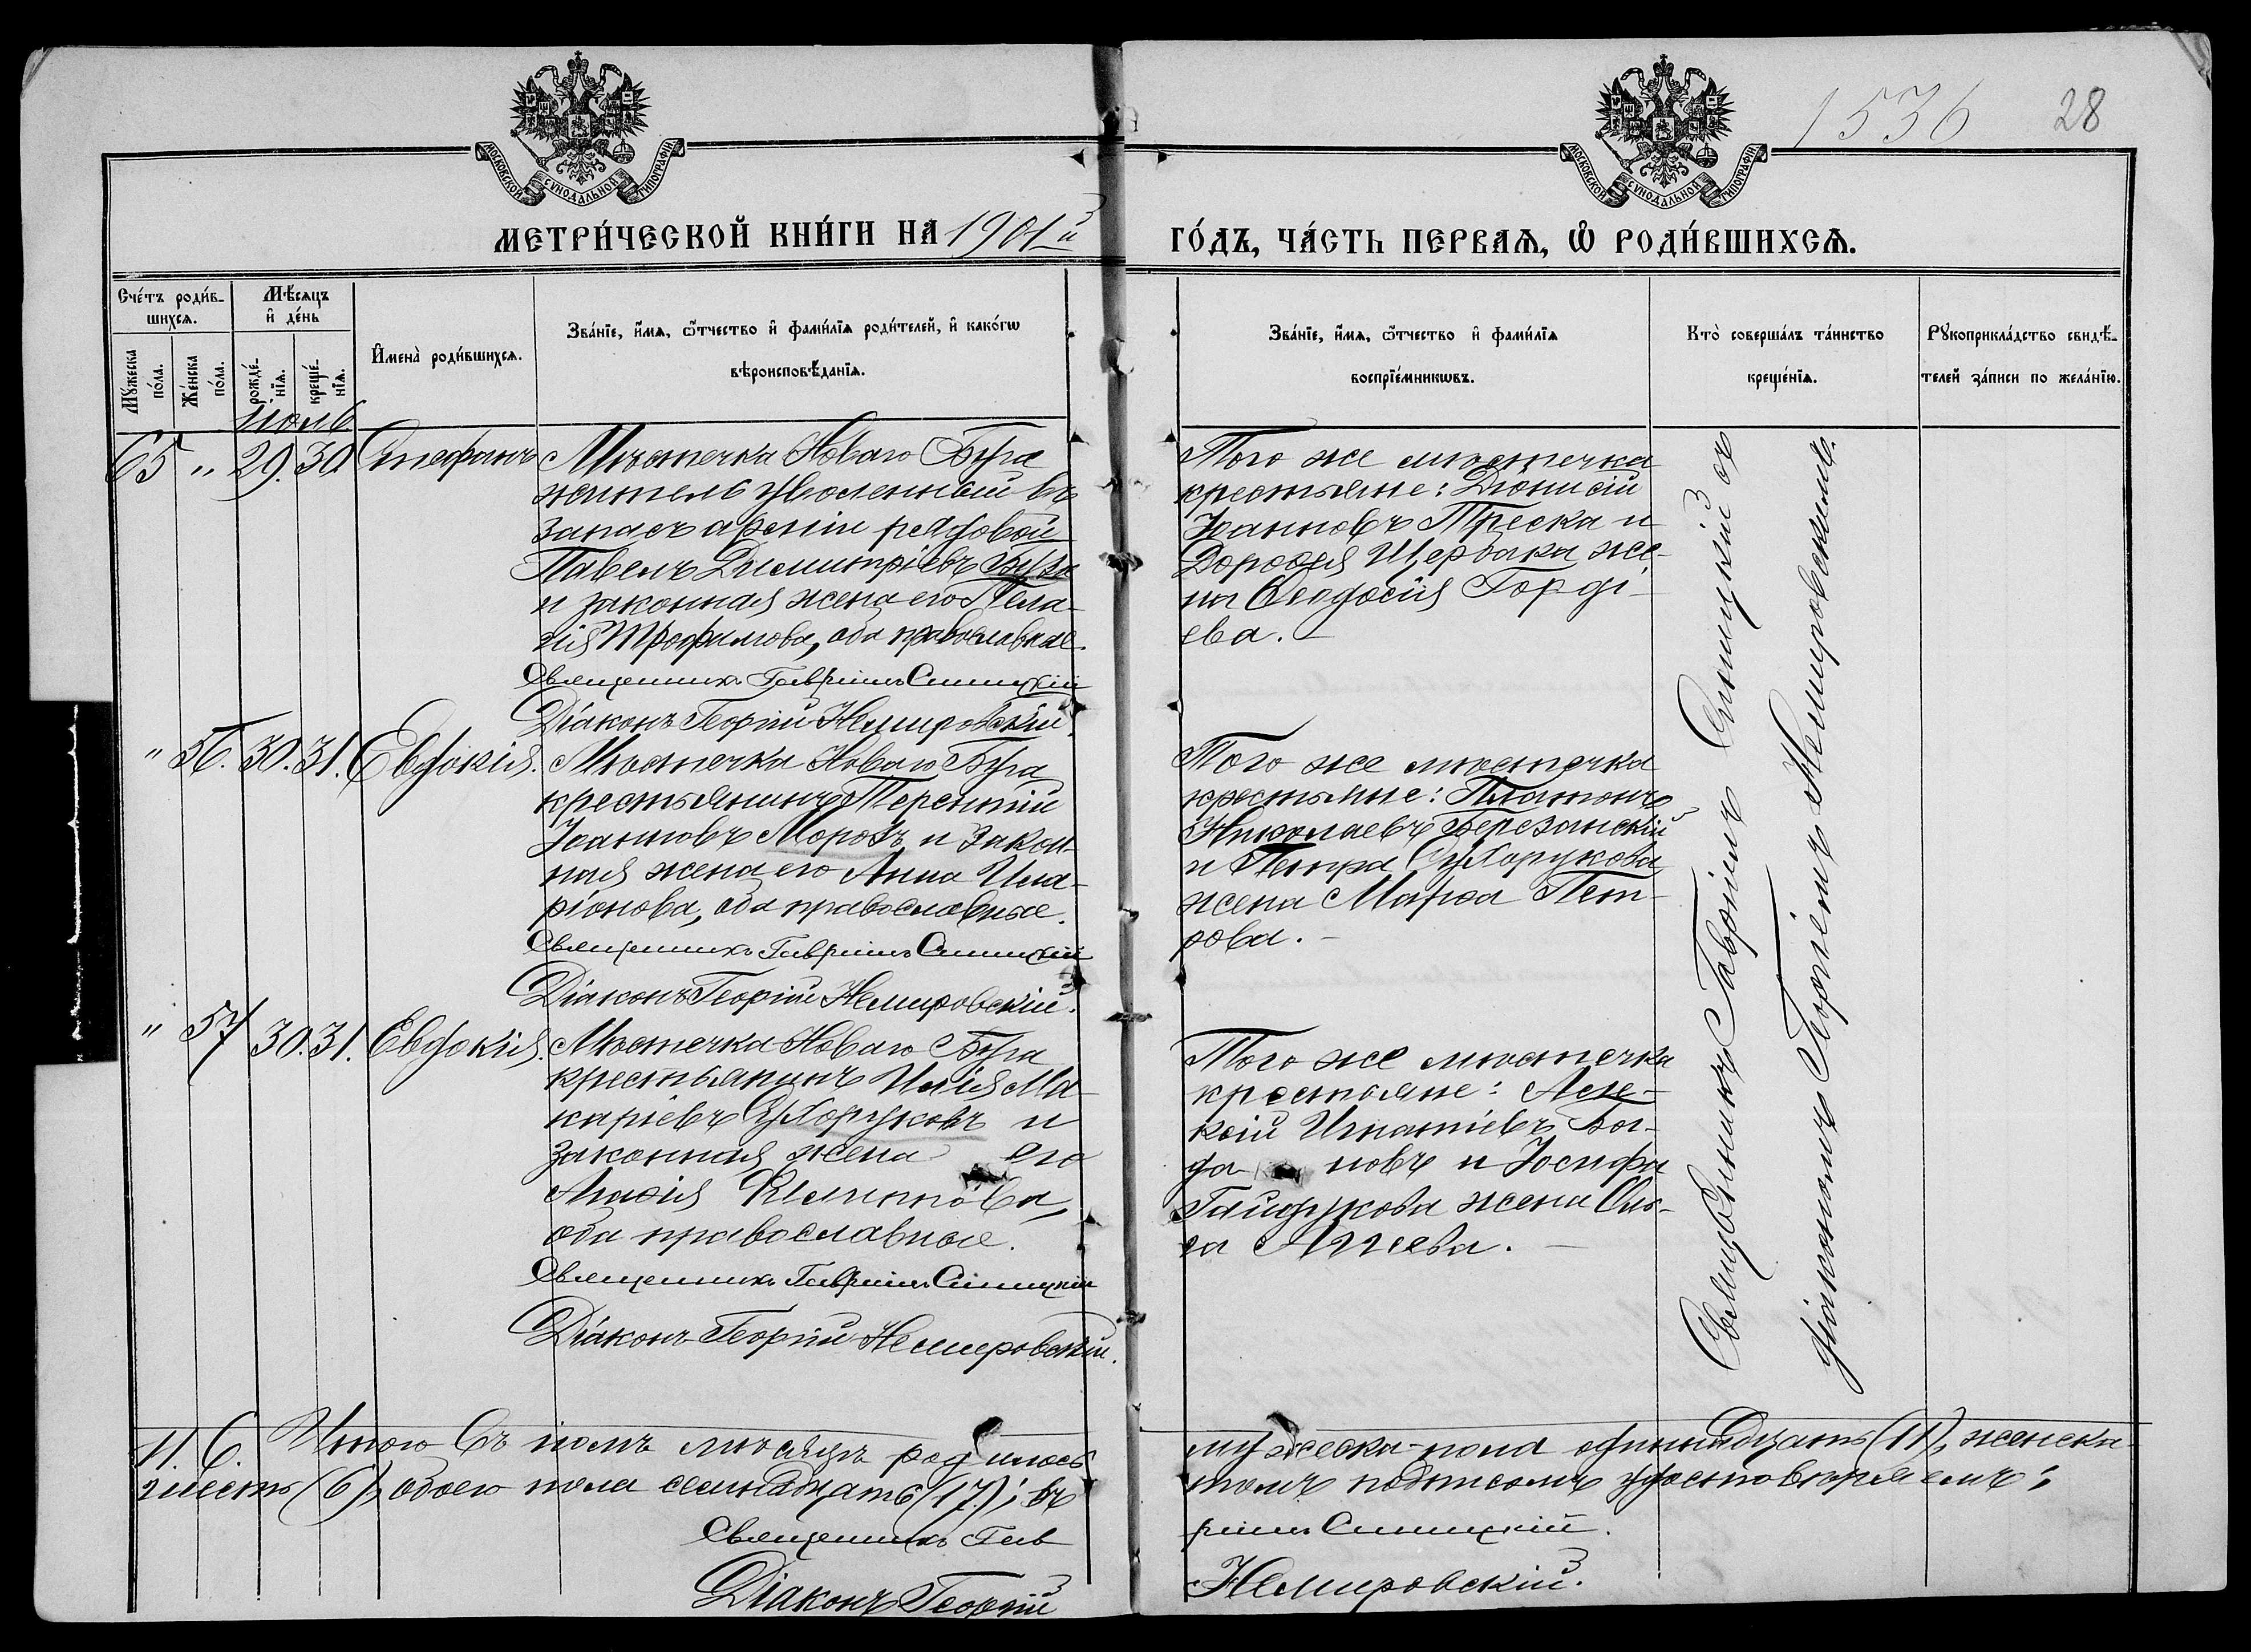 1536 28
МОСКОВСКОЙ СУНОДАЛЬНОЙ ТИПОГРАФІИ
МОСКОВСКОЙ СУНОДАЛЬНОЙ ТИПОГРАФІИ
МЕТРИ́ЧЕСКОЙ КНИ́ГИ НА 1901й
ГО́ДЪ, ЧА́СТЬ ПЕРВАѦ, Ѡ҆ РОДИ́ВШИХСѦ.
Сче́тъ роди́в-
шихсѧ.
Мꙋ́жеска по́ла.
Же́нска по́ла.
Мѣ́сѧцъ
и҆ де́нь
рожде́-
нїѧ.
креще́-
нїѧ.
И҆мена̀ роди́вшихсѧ.
Зва́нїе, и҆́мѧ, ѻ҆́тчество и҆ фами́лїѧ роди́телей, и҆ како́гѡ
вѣроисповѣ́данїѧ.
Зва́нїе, и҆́мѧ, ѻ҆́тчество и҆ фами́лїѧ
воспрїе́мникѡвъ.
Кто̀ соверша́лъ та́инство
креще́нїѧ.
Рꙋкоприкла́дство свидѣ́-
телей за́писи по жела́нїю.
Іюль
65 " 29. 30 Стефанъ
Мѣстечка Новаго Буга
житель уволенный въ
запасъ арміи рядовой
Павелъ Димитріевъ
и законная жена его Пела-
гія Трофимова, оба православные.
Священникъ Гавріилъ Синицкій
Діаконъ Георгій Немировскій.
Того же мѣстечка
крестьяне: Діонисій
Іоанновъ Треска и
Дорофея Щербака же-
на Ѳеодосія Горді-
ева. –
" 56. 30. 31. Евдокія.
Мѣстечка Новаго Буга
крестьянинъ Терентій
Іоанновъ Морозъ и закон-
ная жена его Анна Ила-
ріонова, оба православные.
Священникъ Гавріилъ Синицкій
Діаконъ Георгій Немировскій.
Того же мѣстечка
крестьяне: Платонъ
Николаевъ Березанскій
и Петра Сухорукова
жена Марѳа Пет-
рова. –
" 57 30. 31. Евдокія.
Мѣстечка Новаго Буга
крестьянинъ Илія Ма-
каріевъ Сухоруковъ и
законная жена его
Агафія
оба православные.
Священникъ Гавріилъ Синицкій
Діаконъ Георгій Немировскій.
Того же мѣстечка
крестьяне: Алек-
сій Игнатіевъ Бог-
да новъ и Іосифа
Гайдукова жена Оль-
га –
Священникъ Гавріилъ Синицкій съ
діакономъ Георгіемъ Немировскимъ.
11. 6. Итого въ іюлѣ мѣсяцѣ родилось
мужеска пола одиннадцать (11), женска
шесть (6), обоего пола семнадцать (17.); въ
томъ подписомъ удостовѣряемъ:
Священникъ Гав
ріилъ Синицкій.
Діаконъ Георгій
Немировскій.